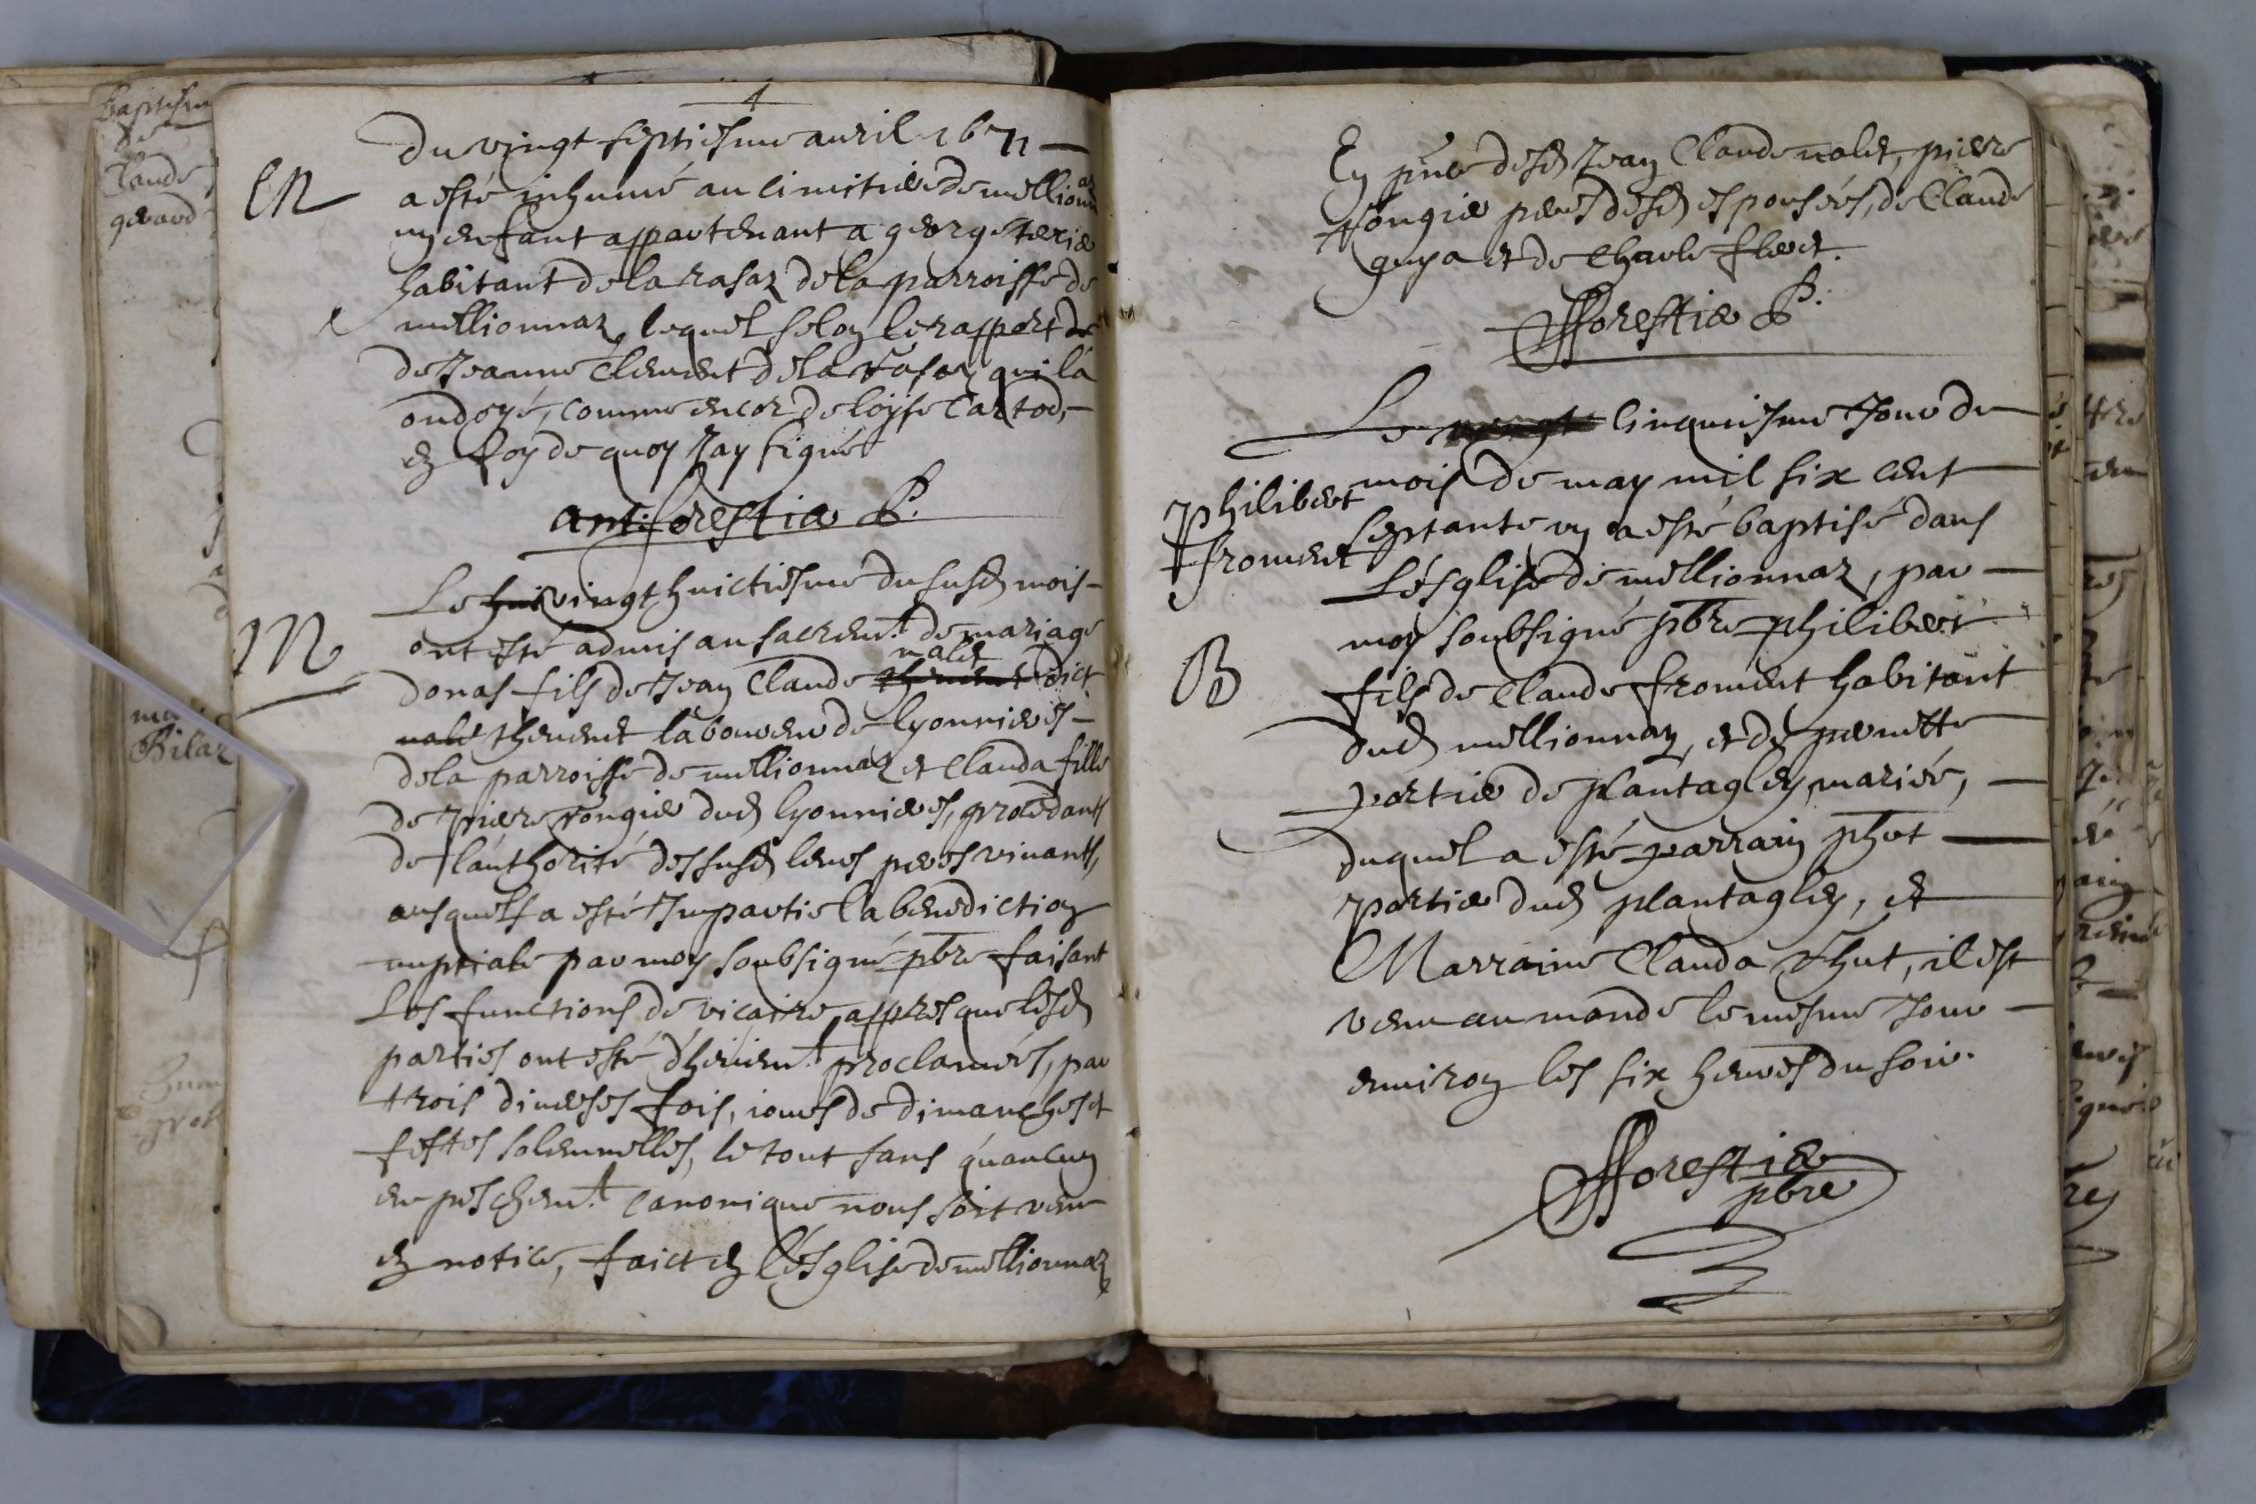 Baptesme
de
Claude
gerard
Bilaz
1
Du vingt septiesme auril 1671
M
a esté inhumé au cimitiere de mellionnaz
un enfant appartenant a george terrier
habitant de la rasaz de la parroisse de
mellionnaz, lequel selon le rapport de
de Jeanne Clement de la rasaz qui la
ondoyé, comme encor de loyse Cartod
en foy de quoy J'ay signé
ant: forestier P.
Le hui vingt huictiesme du susd mois
M
ont esté admis au sacrem.t de mariage
donas fils de Jean Claude nalet thenent dict
nalet thenent laboureur de lyonnieres
de la parroisse de mellionnaz et Clauda fille
de Pierre rongier dud lyonnieres, procedants
de l'authorité des susd leurs peres viuants,
ausquels a esté Impartie la benediction
nuptiale par moy soubsigné pbre faisant
Les functions de vicaire, appres que lesd
parties ont esté dheüem.t proclamées, par
trois diuerses fois, iours de dimanches et
festes solemnelles, le tout sans qu'aucun
enpeschem.t canonique nous soit venu
en notice, faict en l'esglise de mellionnaz
En pnce desd Jean Claude nalet, pierre
rongier peres desd espousés, de Claude
guya et de Charle fleret.
fforestier P.
Le vingt cinquiesme Jour du
mois de may mil six cent
Philibert
froment
septante un a esté baptisé dans
L'ésglise de mellionnaz, par
moy soubsigné pbre philibert
B
fils de Claude froment habitant
dud mellionnaz, et de pernette
portier de plantagley, mariés,
duquel a esté parrain phbt
portier dud plantagley, et
Marraine Clauda thut, il est
venu au monde le mesme Jour
enuiron les six heures du soir.
fforestier
pbre